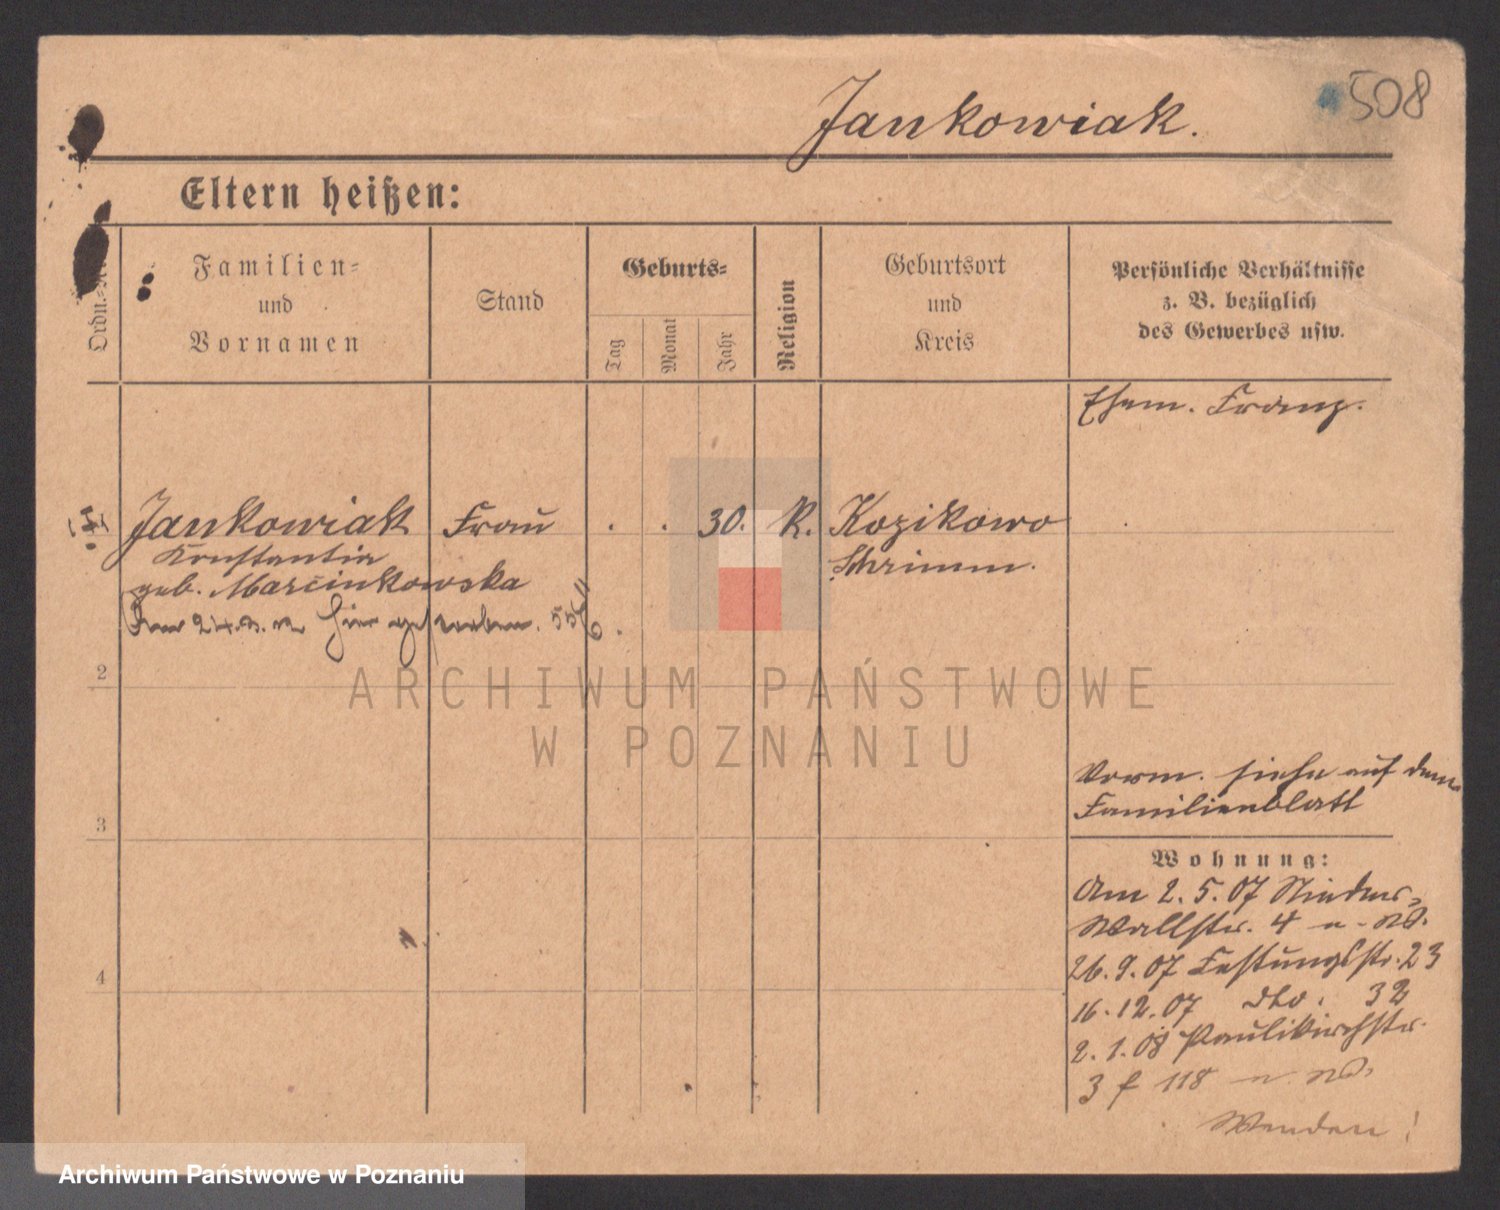 508
Jankowiak.
Eltern heißen:
Ordn.-Nr.
Familien-
und
Vornamen
Stand
Geburts-
Tag
Monat
Jahr
Religion
Geburtsort
und
Kreis
Persönliche Verhältnisse
z. B. bezüglich
des Gewerbes usw.
Ehem. Franz.
Jankowiak Frau . . 30. K. Kozikowo
Konstantia Schrimm.
geb. Marcinkowska
Am 24.3. hier gestorben.
2
ARCHIWUM PAŃSTWOWE
W POZNANIU
Vorm. siehe auf dem
Familienblatt
3
Wohnung:
Am 2. 5. 07 Nieder-
Wallstr. 4
26. 9. 07 Festungsstr. 23
4
16. 12. 07 dto. 32
2. 1. 08 Paulikirchstr.
3 f 118
Wenden!
Archiwum Państwowe w Poznaniu